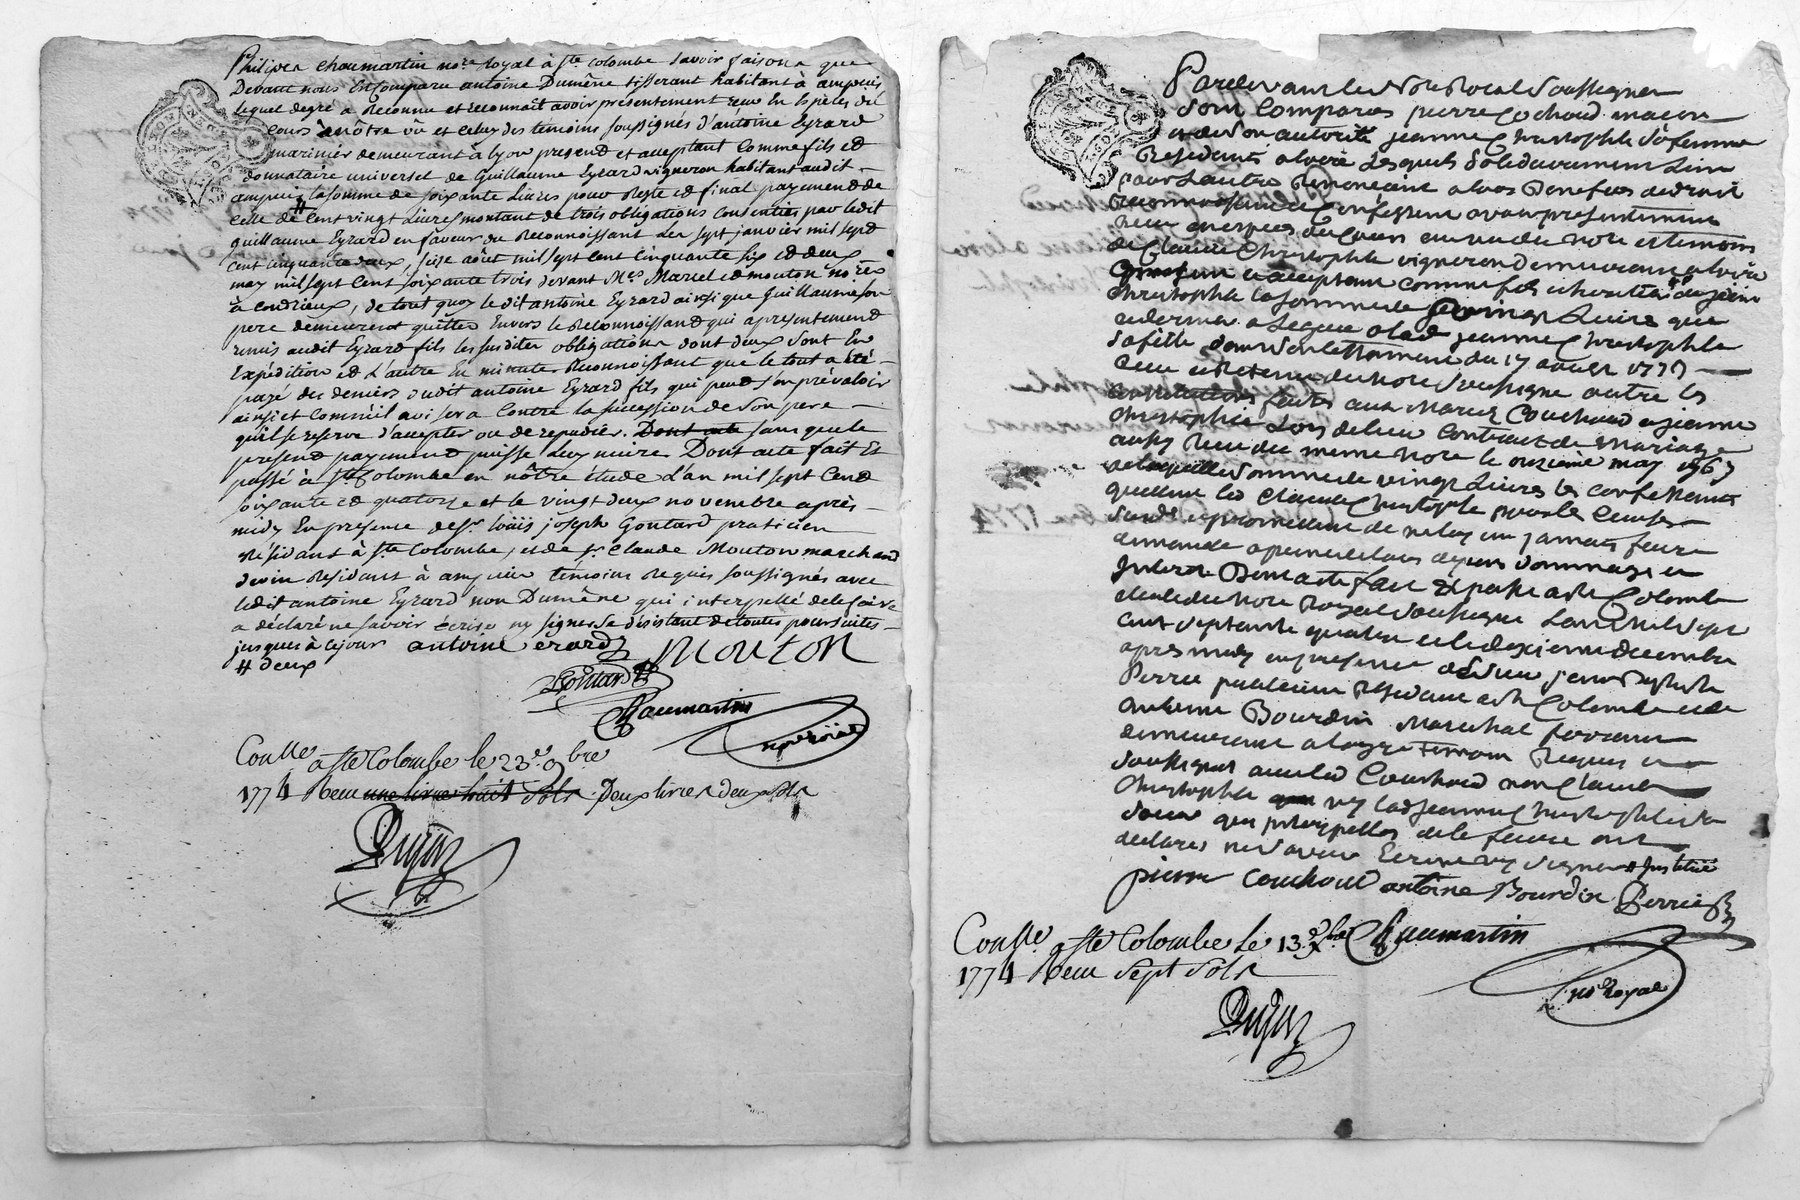 Philipes Chaumartin nore Royal à Ste Colombe savoir faisons que
Devant nous En Comparu antoine Dumêne tisserant habitant à ampuis
lequel degré a Reconnu et reconnait avoir présentement receu En Espèces du
Cours à nôtre vu et celuy des témoins soussignés d'antoine Eyrard
marinier demeurant à lyon present et acceptant Comme fils et
donnataire universel de Guillaume Eyrard vigneron habitant audit
ampuis la somme de soixante Livres pour Reste et final payement de
celle de # Cent vingt Livres montant de trois obligations consenties par ledit
guillaume Eyrard en faveur du Reconnoissant Les sept janvier mil sept
cent cinquante deux, seise aout mil sept Cent Cinquante six et deux
may mil sept Cent soixante trois devant Mes Marcel et mouton nores
à Condrieux, de tout quoy ledit antoine Eyrard ainsi que Guillaume son
pere demeurent quittes Envers le Reconnoissant qui a presentement
remis audit Eyrard fils les susdites obligations dont deux sont En
Expédition et L'autre En minute Reconnoissant que le tout a été
payé des deniers dudit antoine Eyrard fils qui peut s'en prévaloir
ainsi et Comme il avisera Contre la succession de Son pere
qu'il se reserve d'accepter ou de repudier. Dont acte sans que le
present payement puisse Luy nuire Dont acte fait Et
passé à Ste Colombe en nôtre étude L'an mil sept Cent
soixante et quatorse et le vingt deux novembre après
midy En presence de sr. loüis joseph Goutard praticien
Résidant à ste Colombe, et de sr Claude Mouton marchand
de vin Residant à ampuis témoins Requis soussignés avec
ledit antoine Eyrard non Dumêne qui interpellé de le faire
a déclaré ne savoir écrire ny signer se désistant de toutes poursuites
jusques à ce jour antoine erard mouton
# deux
Goutard
Chaumartin
nore roïal
Conlle a Ste Colombe le 23e. 9bre
1774 Receu une livre huit Sols Deux livres deux sols
Dujon
Pardevant Le Nore Royal Soussigné
Sont Comparus pierre Cochoud maçon
et de Son autorité jeanne Christophle Sa femme
Residants a loire Lesquels Solidairement L'un
pour L'autre Renonçant a tous Benefices de droit
Reconnoissent et Confessent avoir presentement
Receu en espèces du Cours au vu du Nore et temoins
de Claude Christophle vigneron Demeurant a loire
present et acceptant comme fils et heritier de
Christophle la Somme de vingt Livres que
a Legué a lad. jeanne Christophle
Sa fille dans Son testament du 17 avril
Receu et Retenu du Nore Soussigné outre les
Constitutions faites aux Mariez Couchoud et jeanne
Christophle Lors de leur Contract de Mariage
aussy Receu du meme Nore le onzieme may 1763
de laquelle Somme de vingt Livres les confessants
quittent led Claude Christophle pour les Causes
Susd. et promettent de ne luy en jamais faire
demande a peine de tous depens dommages et
Interets Dont acte fait Et passé a Ste Colombe
etude du Nore Royal Soussigné Lan Mil Sept
cent Septante quatre et le dixieme decembre
apres midy en presence de Sieur jean Baptiste
Perrier praticien Residant a Ste Colombe et de
Antoine Bourdin Marechal
demeurant a temoins Requis et
Soussignés avec led Couchoud non Claude
Christophle ny lad jeanne Christophle Sa
Soeur qui interpellés de le faire ont
declarés ne Savoir Ecrire ny Signer # Institué
pierre couchout antoine Bourdin Perrier
Conlle a Ste Colombe le 13e. Xbre Chaumartin
1774 Receu Sept Sols
nre Royal
Dujon